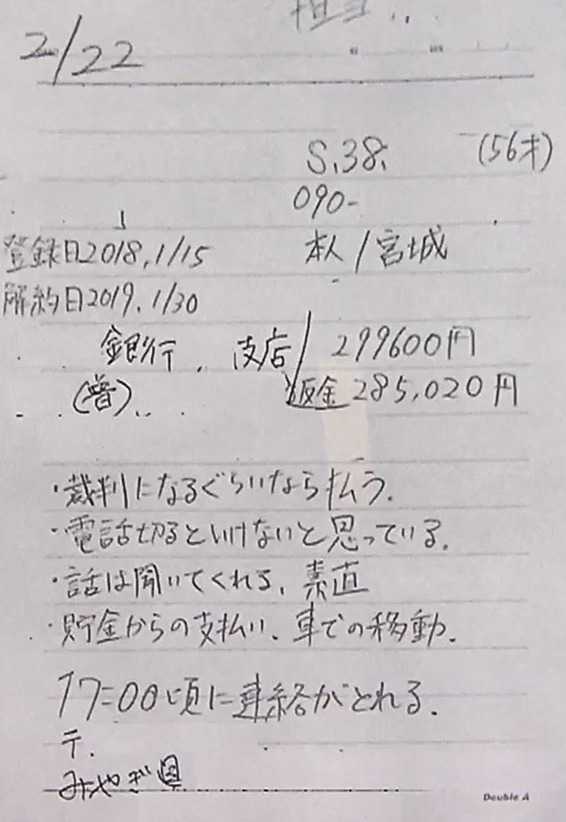 担当
2/22
S.38. (56才)
090-
登録日2018.1/15 本人/宮城
解約日2019.1/30
銀行 支店/299600円
(普) 返金285,020円
・裁判になるぐらいなら払う.
・電話切るといけないと思っている.
・話は聞いてくれる、素直
・貯金からの支払い、車での移動.
17:00頃に連絡がとれる.
〒.
みやぎ県
Double A